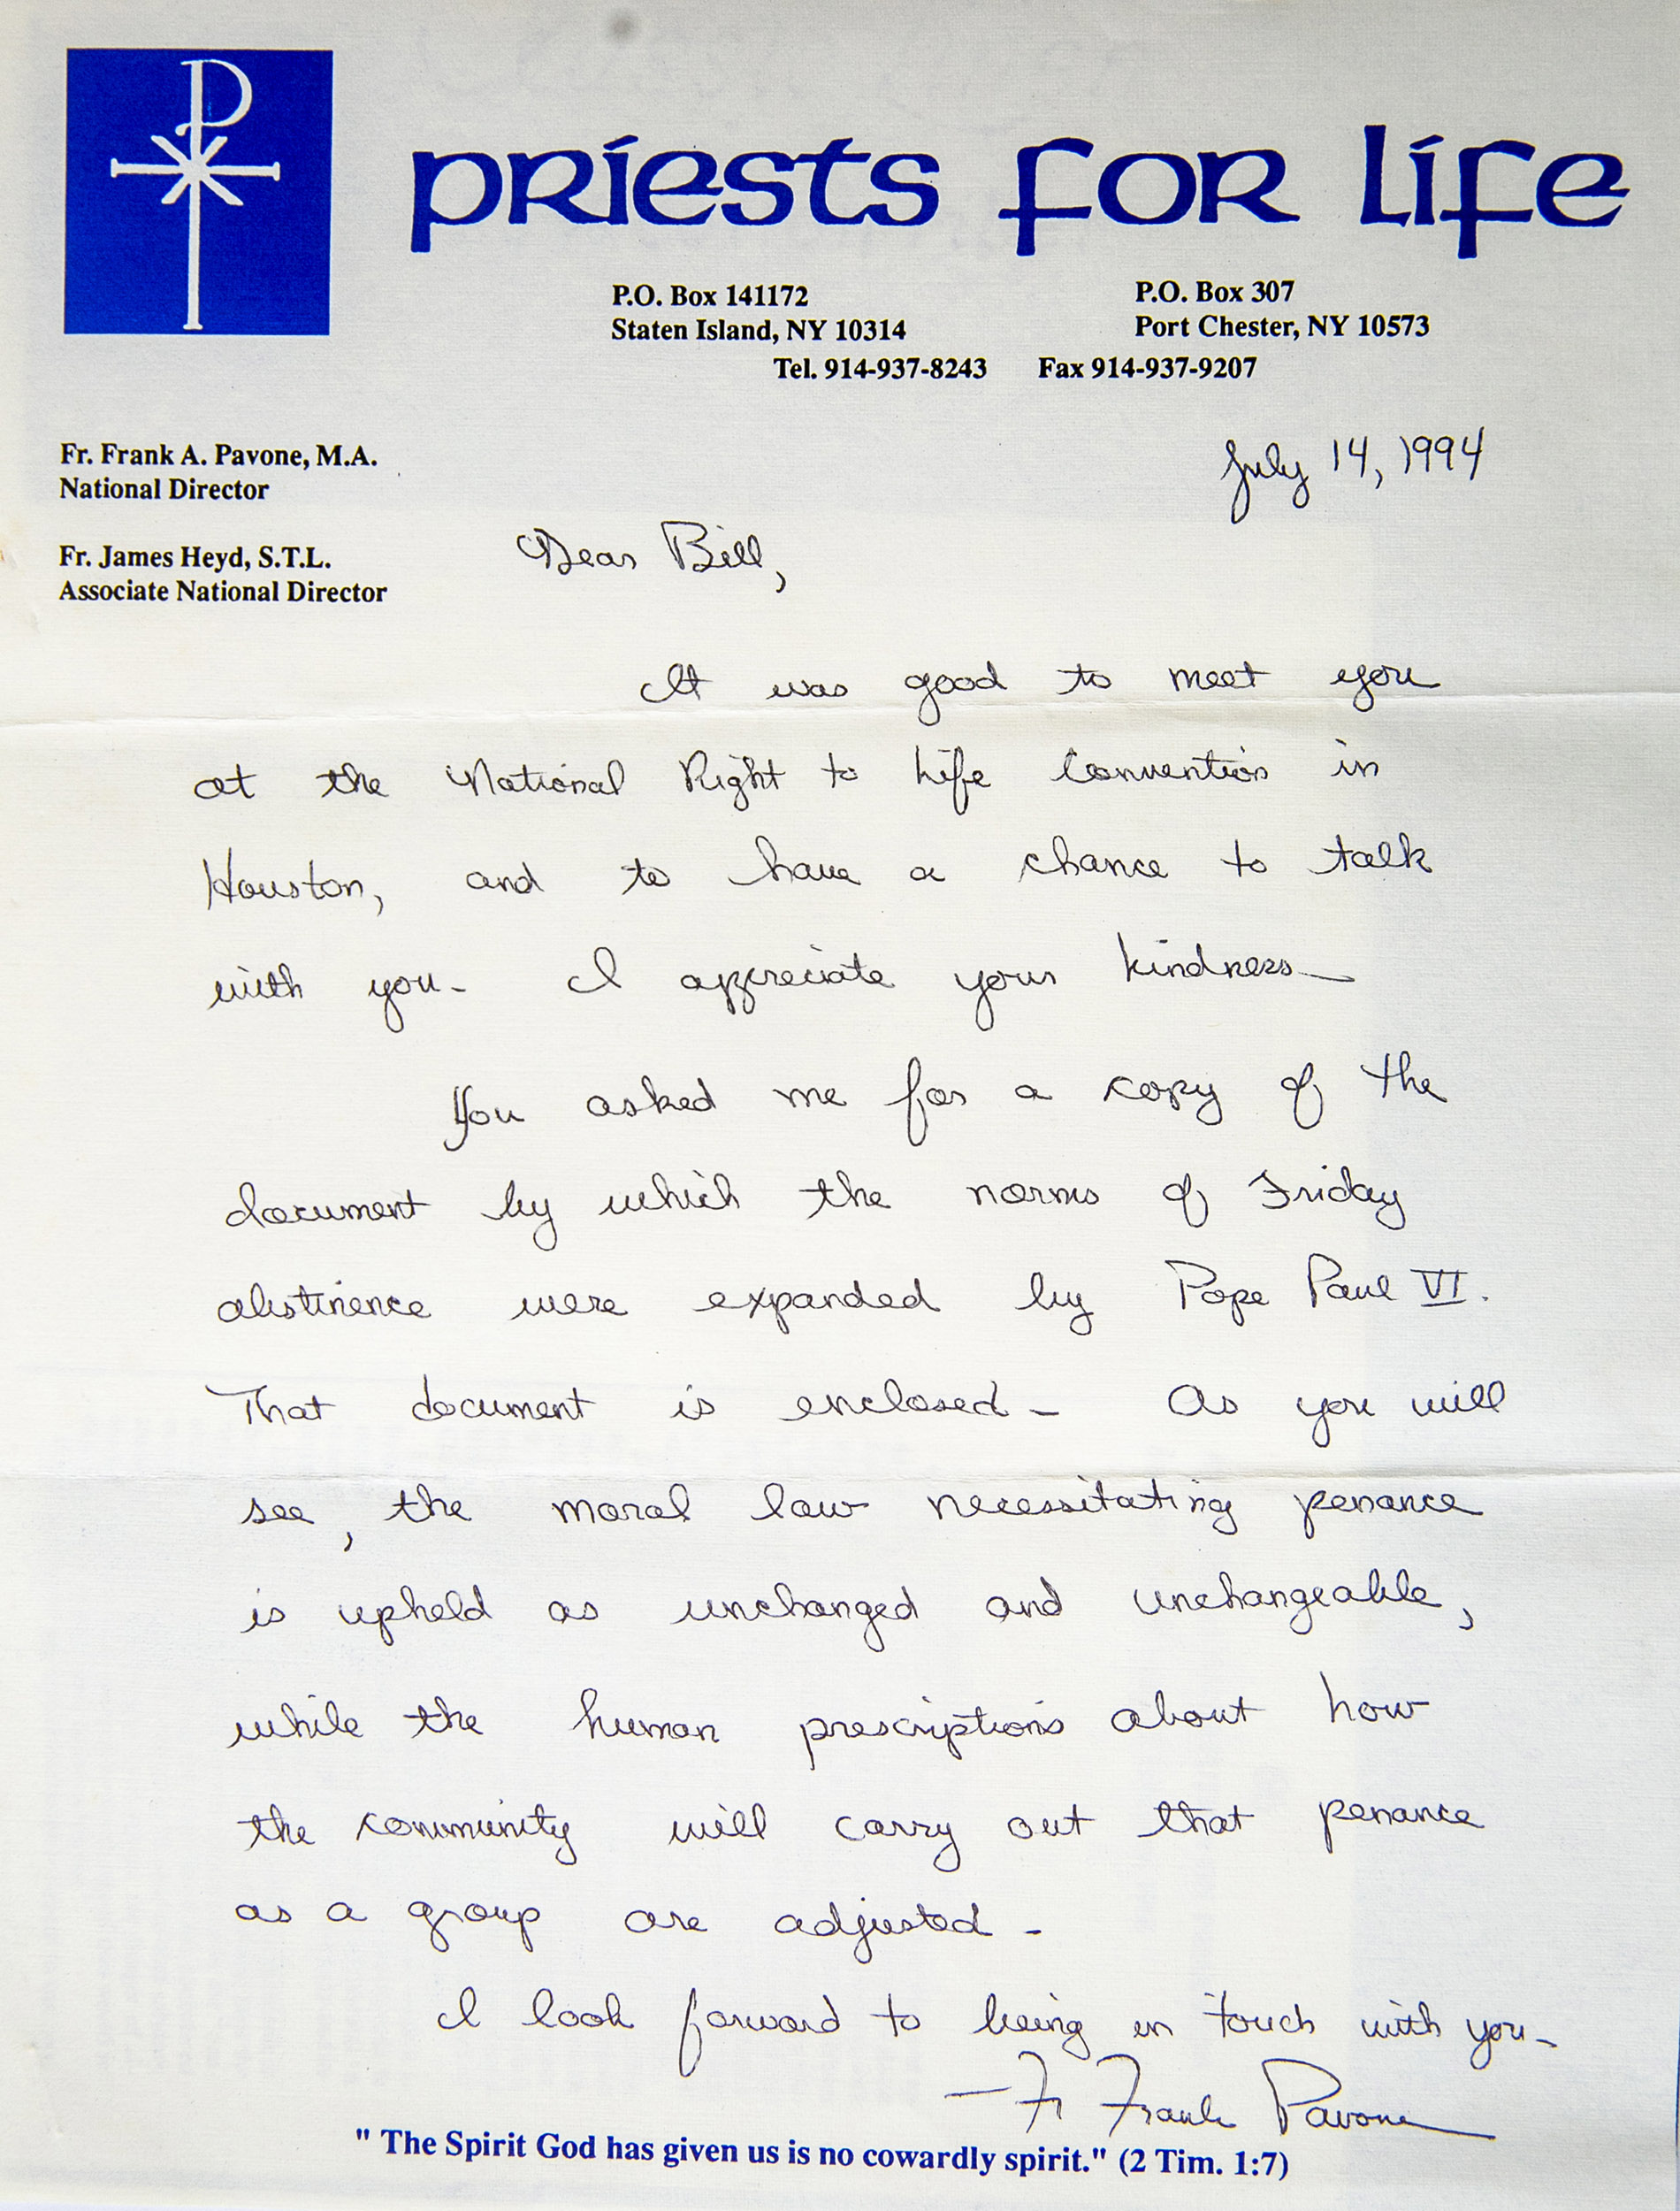 priests for life
P.O. Box 141172
Staten Island, NY 10314
P.O. Box 307
Port Chester, NY 10573
Tel. 914-937-8243 Fax 914-937-9207
Fr. Frank A. Pavone, M.A.
National Director
Fr. James Heyd, S.T.L.
Associate National Director
July 14, 1994
Dear Bill,
It was good to meet you
at the National Right to Life Convention in
Houston, and to have a chance to talk
with you. I appreciate your kindness.
You asked me for a copy of the
document by which the norms of Friday
abstinence were expanded by Pope Paul VI.
That document is enclosed. As you will
see, the moral law necessitating penance
is upheld as unchanged and unchangeable,
while the human prescriptions about how
the community will carry out that penance
as a group are adjusted.
I look forward to being in touch with you.
—Fr Frank Pavone
" The Spirit God has given us is no cowardly spirit." (2 Tim. 1:7)